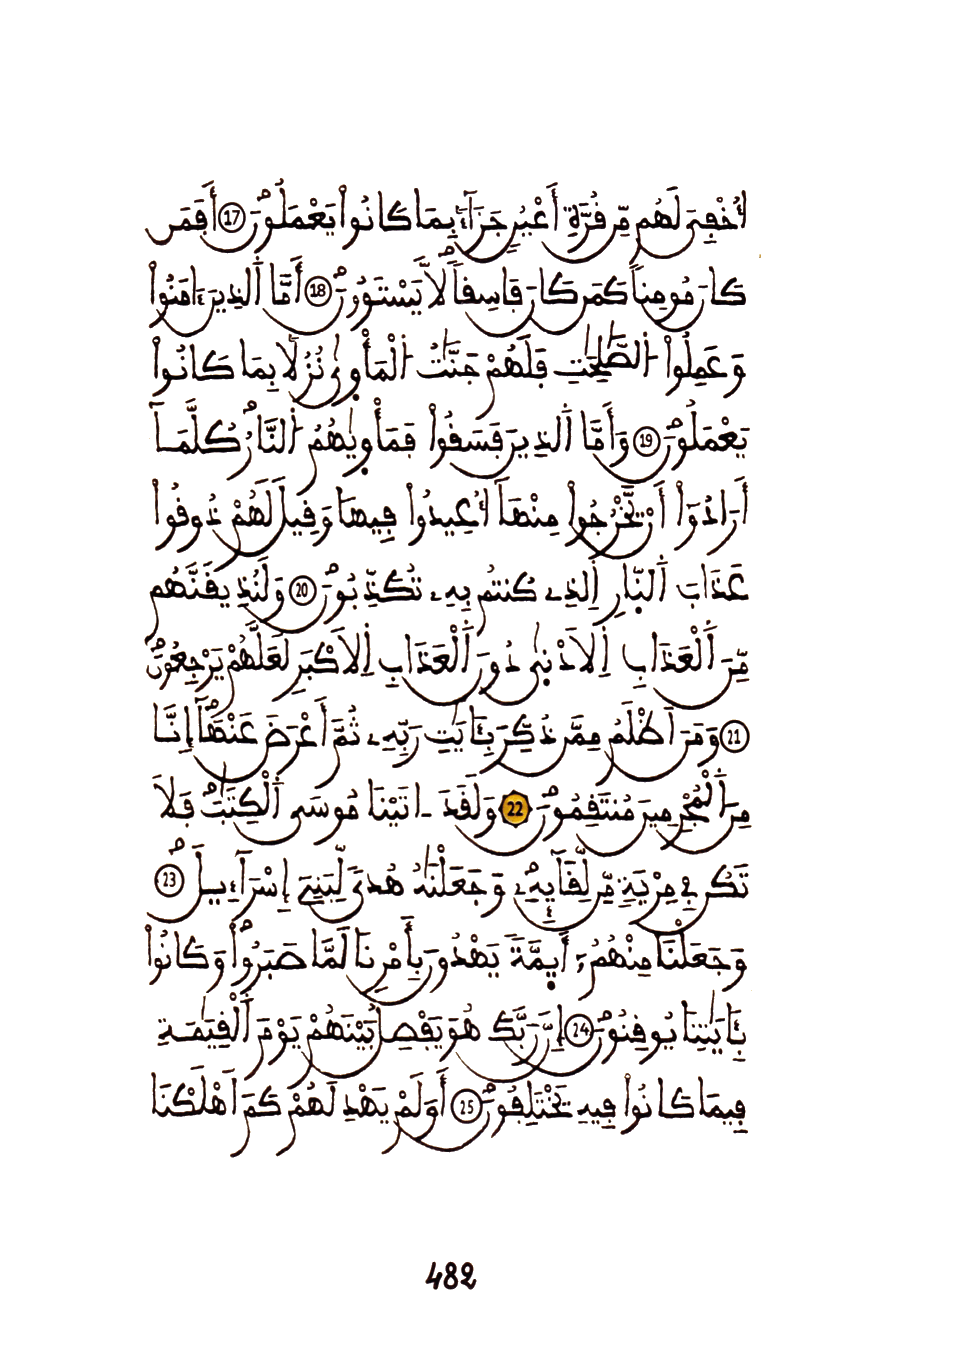 اُخْفِيَ لَهُم مِّن قُرَّةِ أَعْيُنٍ جَزَآءَۢ بِمَا كَانُواْ يَعْمَلُونَ 17 أَفَمَن
كَانَ مُومِناٗ كَمَن كَانَ فَاسِقاٗ لَّا يَسْتَوُۥنَ 18 أَمَّا اَلذِينَ ءَامَنُواْ
وَعَمِلُواْ اُلصَّٰلِحَٰتِ فَلَهُمْ جَنَّٰتُ اُلْمَأْوٜىٰ نُزُلَاۢ بِمَا كَانُواْ
يَعْمَلُونَ 19 وَأَمَّا اَلذِينَ فَسَقُواْ فَمَأْوٜىٰهُمُ اُلنَّارُ كُلَّمَآ
أَرَادُوٓاْ أَنْ يَّخْرُجُواْ مِنْهَآ أُعِيدُواْ فِيهَا وَقِيلَ لَهُمْ ذُوقُواْ
عَذَابَ اَلنّ۪ارِ اِلذِے كُنتُم بِهِۦ تُكَذِّبُونَ 20 وَلَنُذِيقَنَّهُم
مِّنَ اَلْعَذَابِ اِلَادْنٜىٰ دُونَ اَلْعَذَابِ اِلَاكْبَرِ لَعَلَّهُمْ يَرْجِعُونَ
21 وَمَنَ اَظْلَمُ مِمَّن ذُكِّرَ بِـَٔايَٰتِ رَبِّهِۦ ثُمَّ أَعْرَضَ عَنْهَآ إِنَّا
مِنَ اَلْمُجْرِمِينَ مُنتَقِمُونَ 22 وَلَقَدَ ـ اتَيْنَا مُوسَى اَلْكِتَٰبَ فَلَا
تَكُن فِے مِرْيَةٖ مِّن لِّقَآئِهِۦ وَجَعَلْنَٰهُ هُدىٗ لِّبَنِےٓ إِسْرَآءِيلَ 23
وَجَعَلْنَا مِنْهُمُۥٓ أَي۪مَّةٗ يَهْدُونَ بِأَمْرِنَا لَمَّا صَبَرُواْ وَكَانُواْ
بِـَٔايَٰتِنَا يُوقِنُونَ 24 إِنَّ رَبَّكَ هُوَ يَفْصِلُ بَيْنَهُمْ يَوْمَ اَلْقِيَٰمَةِ
فِيمَا كَانُواْ فِيهِ يَخْتَلِفُونَ 25 أَوَلَمْ يَهْدِ لَهُمْ كَمَ اَهْلَكْنَا
482